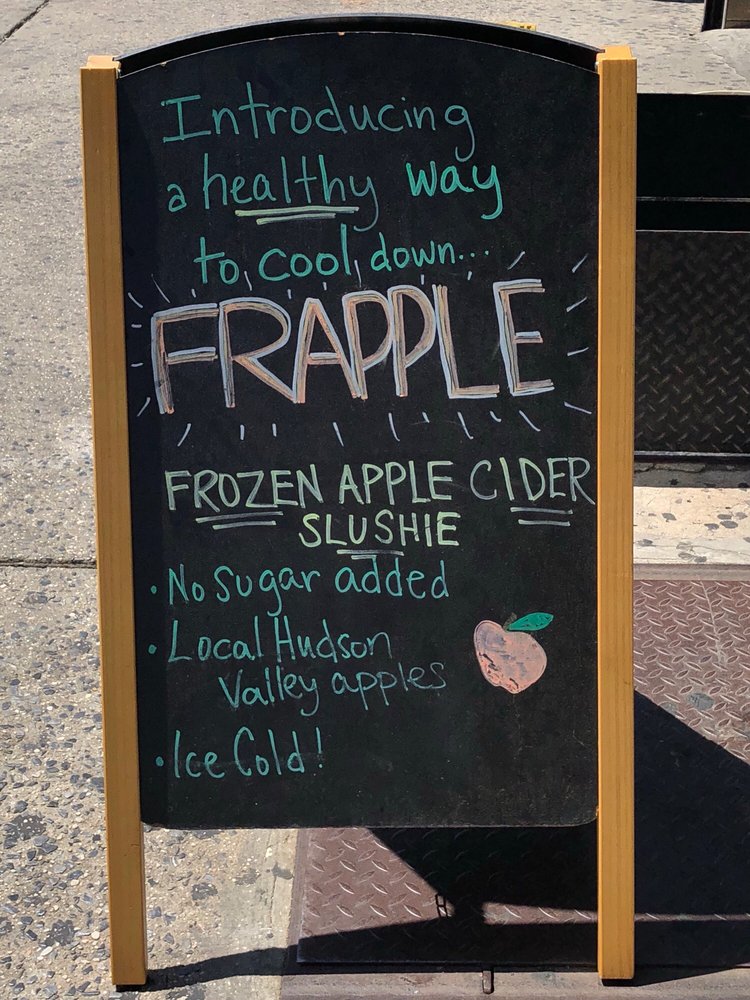 Introducing
a healthy way
to cool down...
FRAPPLE
FROZEN APPLE CIDER
SLUSHIE
· No Sugar added
· Local Hudson
Valley apples
· Ice Cold!